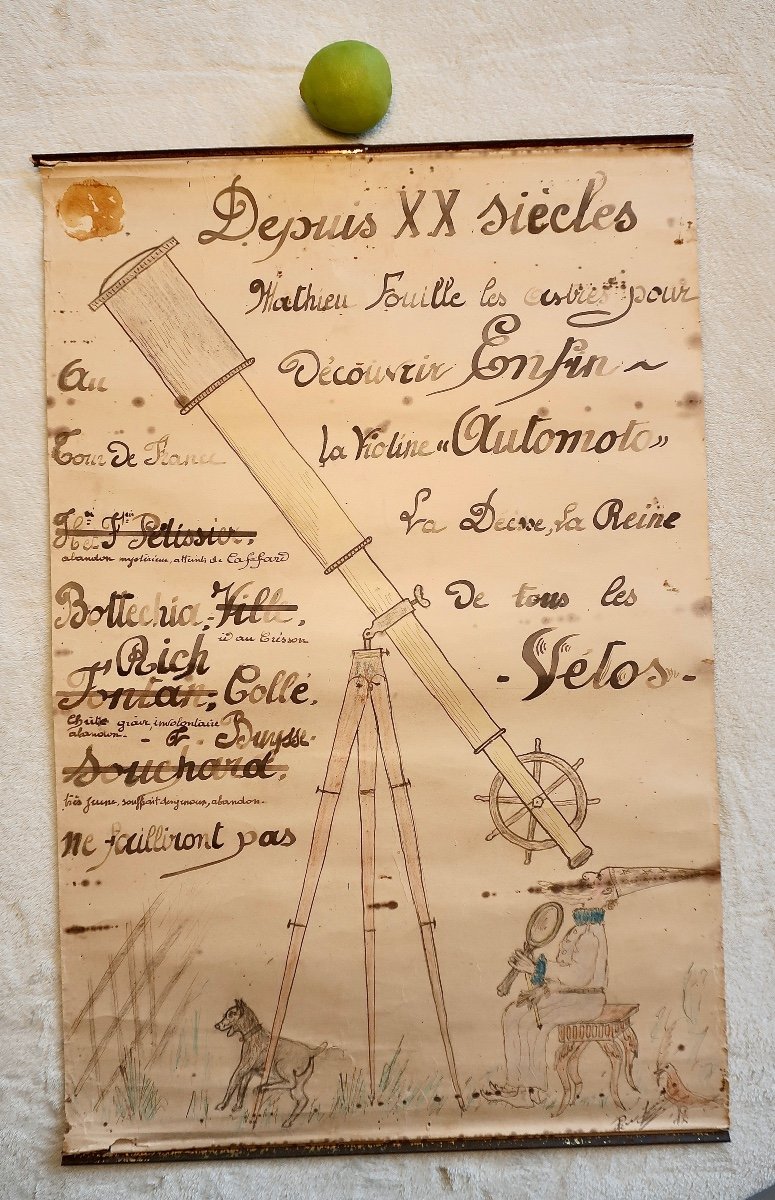 Depuis XX siècles
Mathieu Fouille les astres pour
Découvrir Enfin ~
La Violine « Automoto »
La Déesse, La Reine
De tous les
- Vélos -
Au
Tour De France
Hri et Fcis Pélissier.
abandon mystérieux, atteints de Cafard
Bottechia, Ville,
id au Crésson
Rich
Fontan, Collé,
Chûte grâve, involontaire
abandon. -
- & - Buysse.
Souchard,
très jeune, souffrait des genoux, abandon.
ne failliront pas